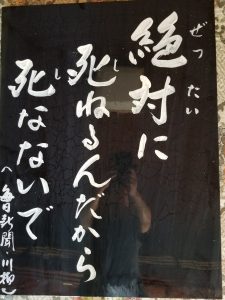 絶対に
死ねるんだから
死なないで
(毎日新聞・川柳)
ぜったい
し
し